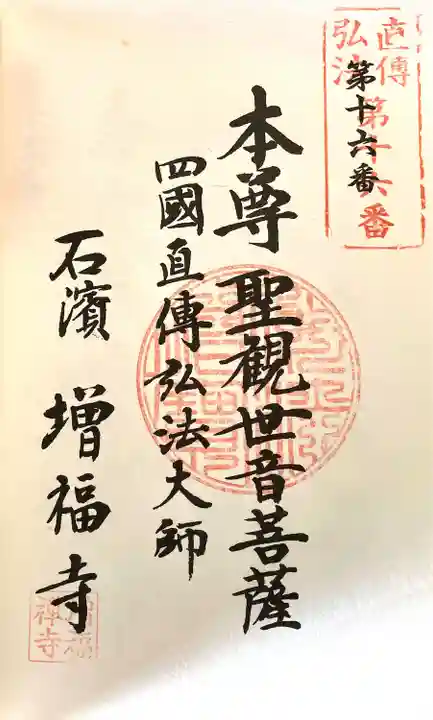 直傳
弘法
第十六番
第十六番
本尊聖観世音菩薩
四國直傳弘法大師
石濱 増福寺
増福
禅寺